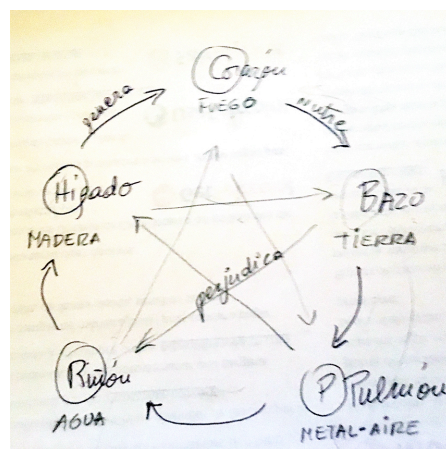 Corazón
FUEGO
genera
nutre
Higado
MADERA
BAZO
TIERRA
perjudica
Riñón
AGUA
P Pulmón
METAL-AIRE